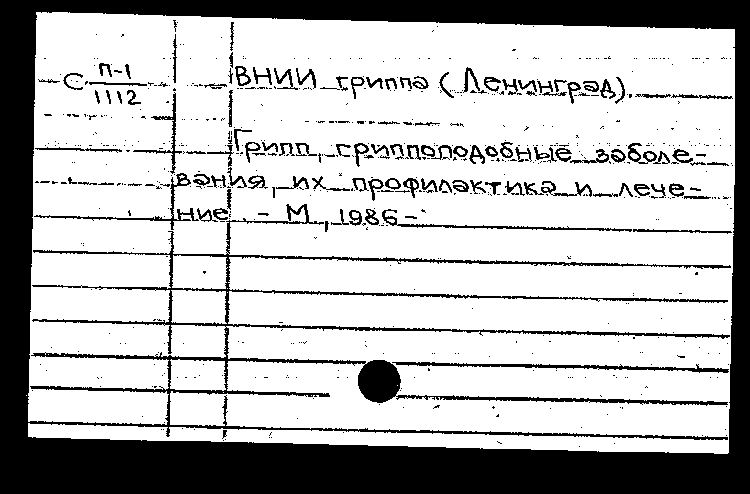 С П-1/1112 ВНИИ гриппа (Ленинград).
Грипп, гриппоподобные заболе-
вания, их профилактика и лече-
ние. - М., 1986-